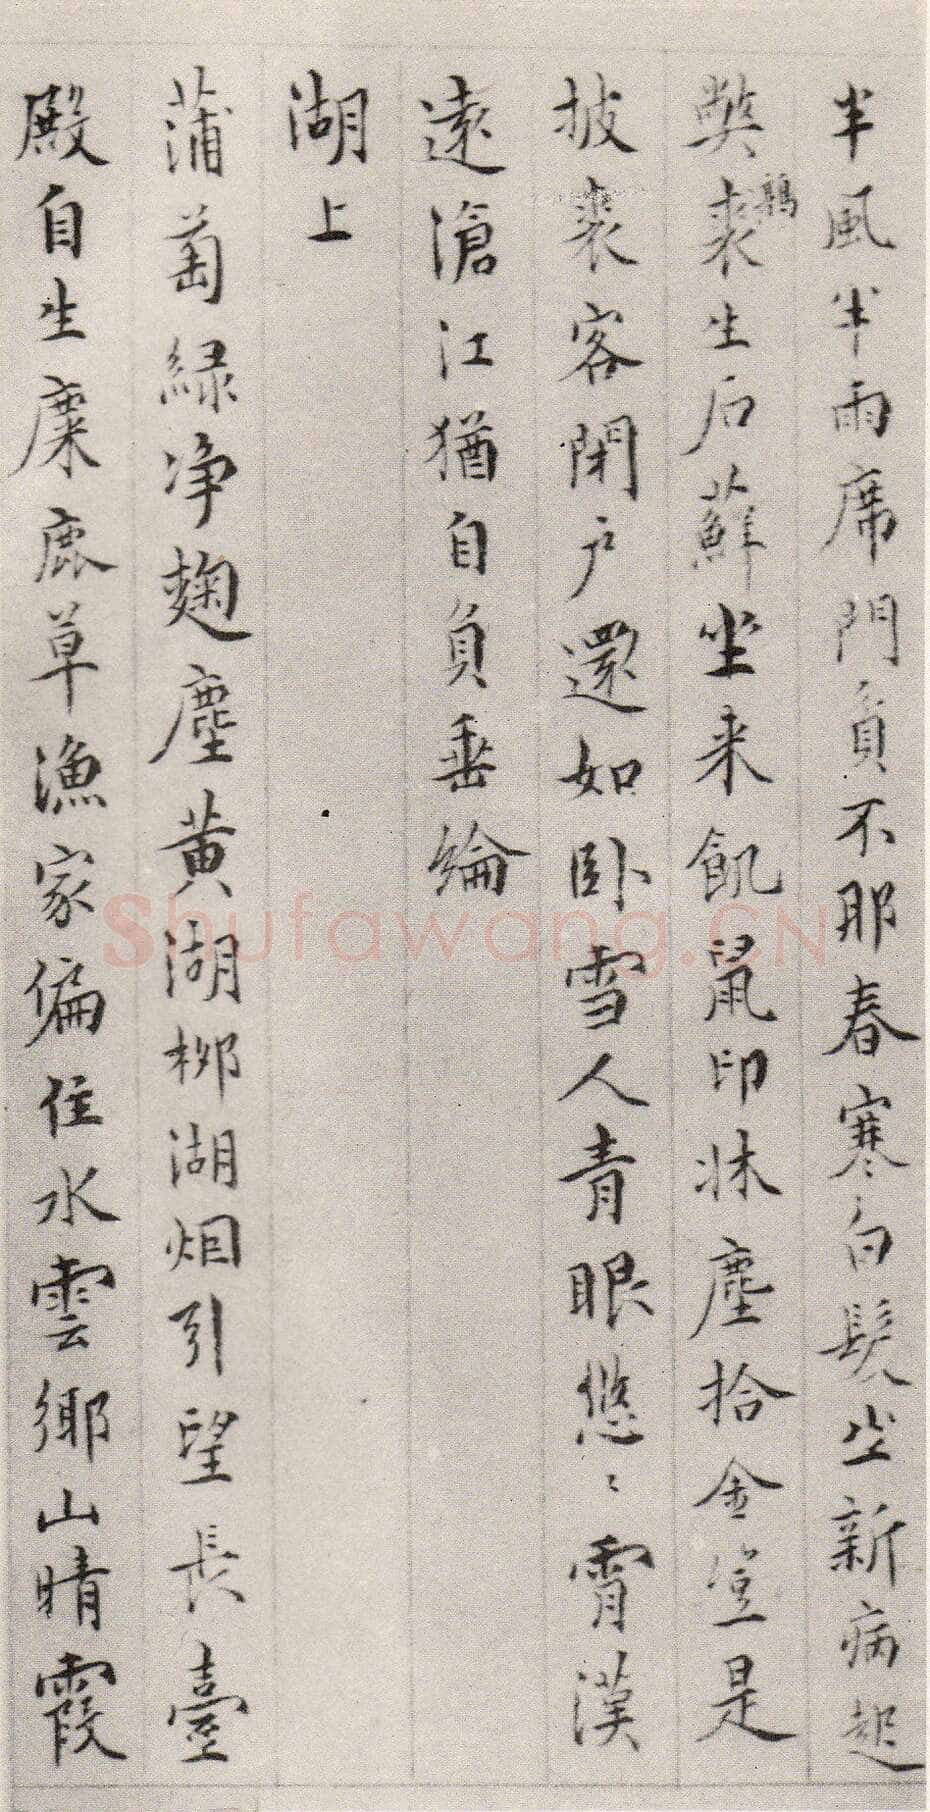 半風半雨席門負不耶春寒白髮坐新病起
獘裘生后蘚坐来飢鼠印牀塵拾金豈是
鶉
披裘客閉户還如卧雪人青眼悠〻霄漢
遠滄江猶自負垂綸
湖上
蒲萄緑净麴塵黄湖栁湖烟引望長臺
殿自生麋鹿草漁家偏住水雲鄉山晴霞
Shufawang.CN